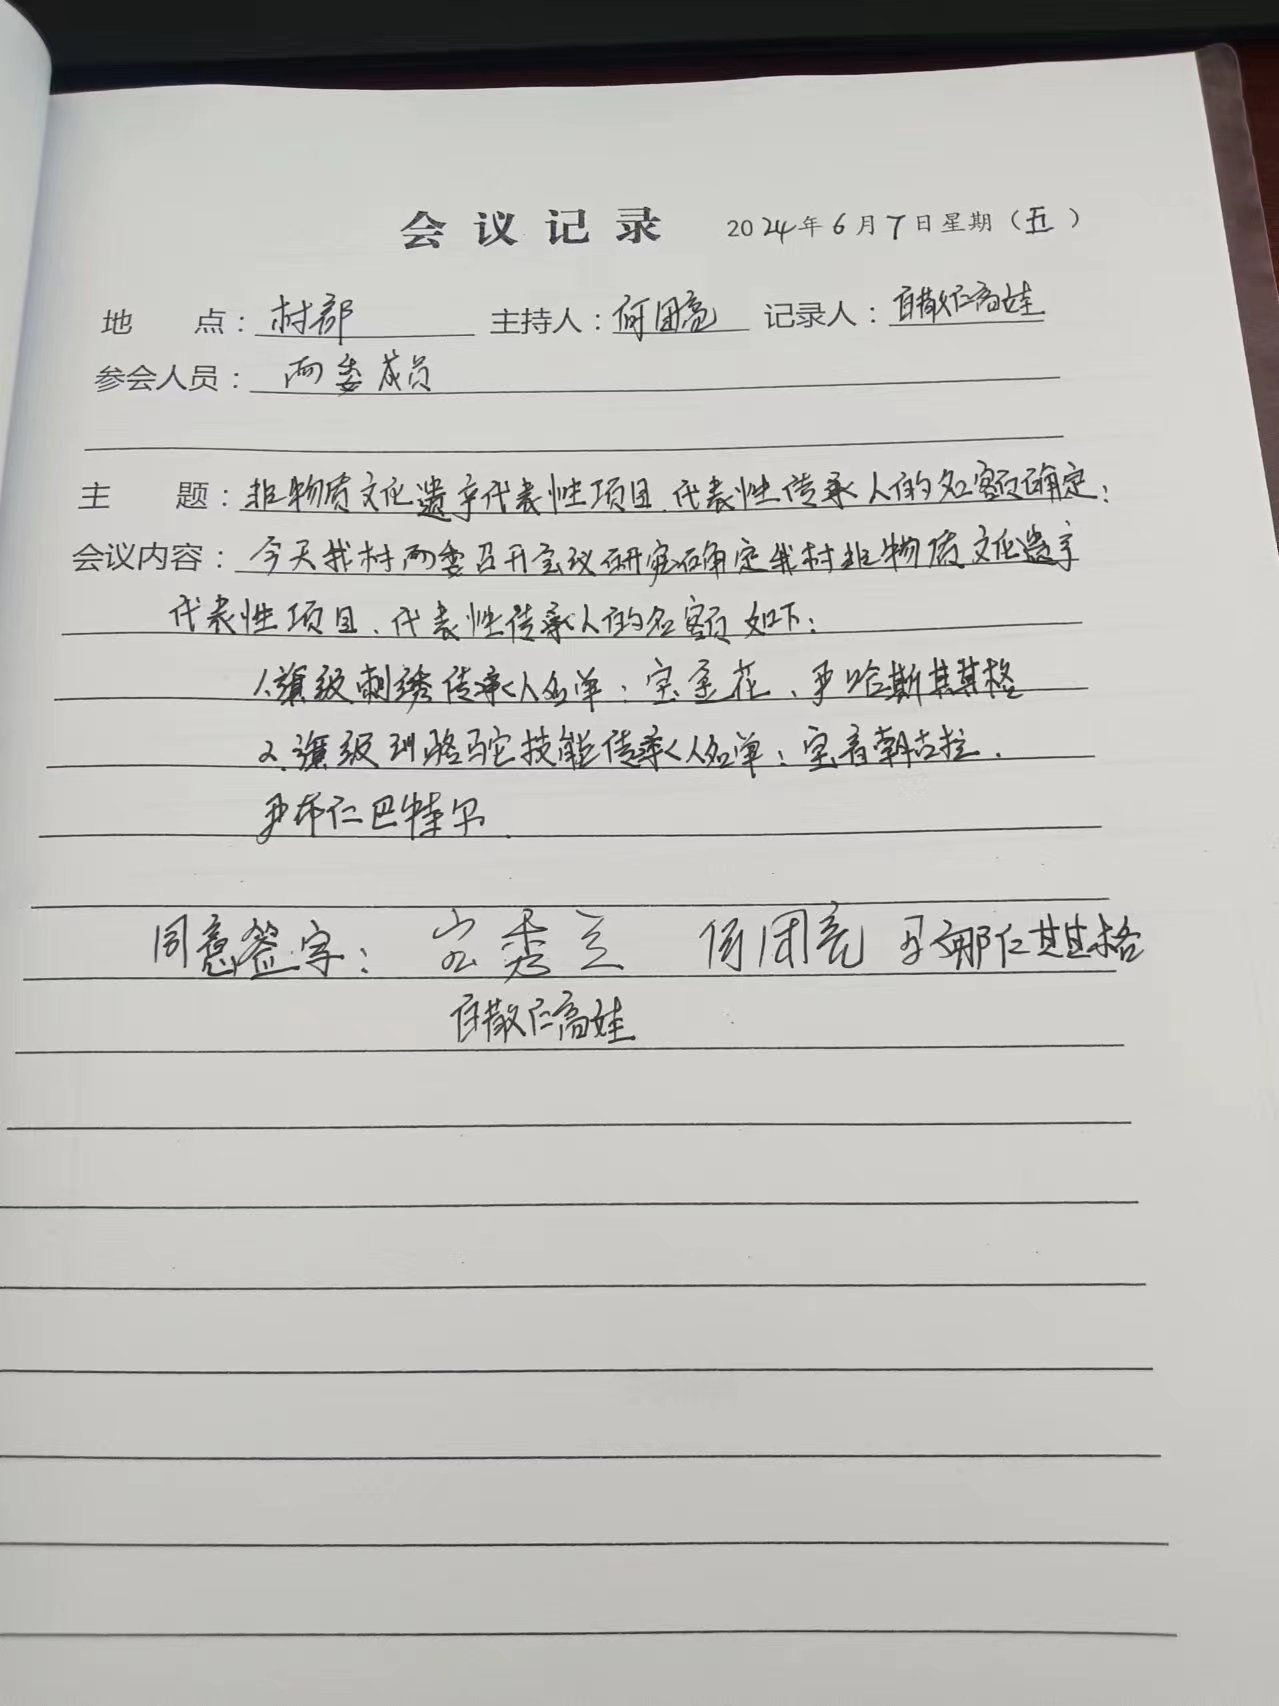 会议记录 2024年6月7日星期（五）
地 点：村部 主持人：何团亮 记录人：白散仁高娃
参会人员：两委成员
主 题：非物质文化遗产代表性项目、代表性传承人的名额确定：
会议内容：今天我村两委召开会议研究确定我村非物质文化遗产
代表性项目、代表性传承人的名额如下：
1.旗级刺绣传承人名单：宝金花、尹哈斯其其格
2.旗级训骆驼技能传承人名单：宝音朝古拉、
尹布仁巴特尔.
同意签字： 秀 何团亮 娜仁其其格
白散仁高娃